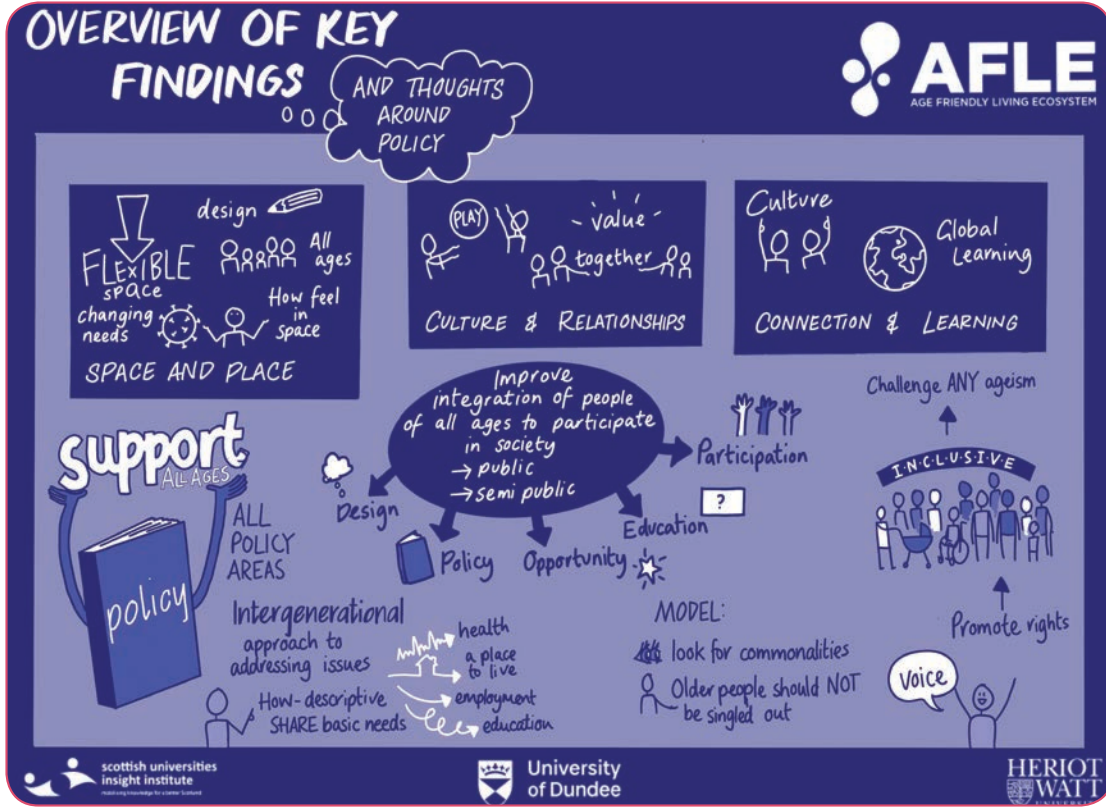 OVERVIEW OF KEY
FINDINGS
AND THOUGHTS
AROUND
POLICY
AFLE
AGE FRIENDLY LIVING ECOSYSTEM
design
FLEXIBLE
space
All
ages
changing
needs
How feel
in
space
SPACE AND PLACE
PLAY
value
together
CULTURE & RELATIONSHIPS
Culture
Global
Learning
CONNECTION & LEARNING
Improve
integration of people
of all ages to participate
in society
→ public
→ semi public
Design
Policy
Opportunity
Education
?
Participation
Challenge ANY ageism
INCLUSIVE
Promote rights
Voice
support
ALL AGES
policy
ALL
POLICY
AREAS
Intergenerational
approach to
addressing issues
How-descriptive
SHARE basic needs
health
a place
to live
employment
education
MODEL:
look for commonalities
Older people should NOT
be singled out
scottish universities
insight institute
mobilising knowledge for a better Scotland
University
of Dundee
HERIOT
WATT
UNIVERSITY